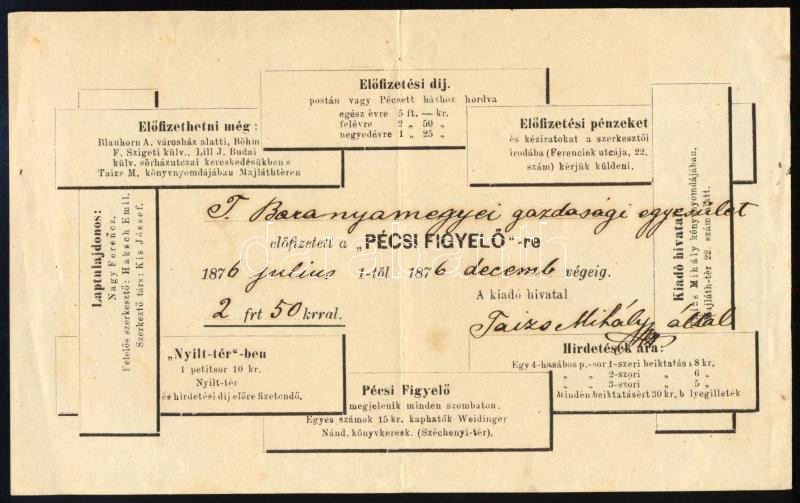 Előfizetési dij.
postán vagy Pécsett házhoz hordva
egész évre 5 ft. — kr.
félévre 2 „ 50 „
negyedévre 1 „ 25 „
Előfizethetni még:
Blauhorn A. városház alatti, Böhm
F. Szigeti külv., Lill J. Budai
külv. sörházutczai kereskedésükben s
Taizs M. könyvnyomdájában Majláthtéren
Előfizetési pénzeket
és kéziratokat a szerkesztői
irodába (Ferenciek utcája, 22.
szám) kérjük küldeni.
Laptulajdonos:
Nagy Ferencz.
Felelős szerkesztő: Haksch Emil.
Szerkeztő társ: Kis József.
T. Baranyamegyei gazdasági egyesület
előfizetett a „PÉCSI FIGYELŐ“-re
1876 julius 1-től 1876 decemb végeig.
2 frt 50 krral.
A kiadó hivatal
Taizs Mihály által
Kiadó hivatal:
Taizs Mihály könyvnyomdájában,
Majláth-tér 22. szám alatt.
„Nyilt-tér“-ben
1 petitsor 10 kr.
Nyilt-tér
és hirdetési dij előre fizetendő.
Pécsi Figyelő
megjelenik minden szombaton.
Egyes számok 15 kr. kaphatók Weidinger
Nánd. könyvkeresk. (Széchenyi-tér).
Hirdetések ára:
Egy 4-hasábos p.-sor 1-szeri beiktatás 8 kr.
„ „ 2-szori „ 6 „
„ „ 3-szori „ 5 „
Minden beiktatásért 30 kr. bélyegilleték